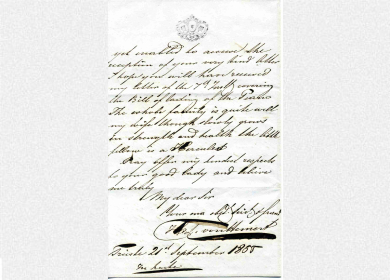 yet enabled to answer the
reception of your very kind letter
I hope you will have received
my letter of the 7th covering
the Bill of lading of the
The whole family is quite well
my wife though slowly gains
in strength and health the little
fellow is a Hercules
Pray offer my kindest respects
to your good lady and believe
me truly
My dear Sir
Your friend
Trieste 21st September 1855